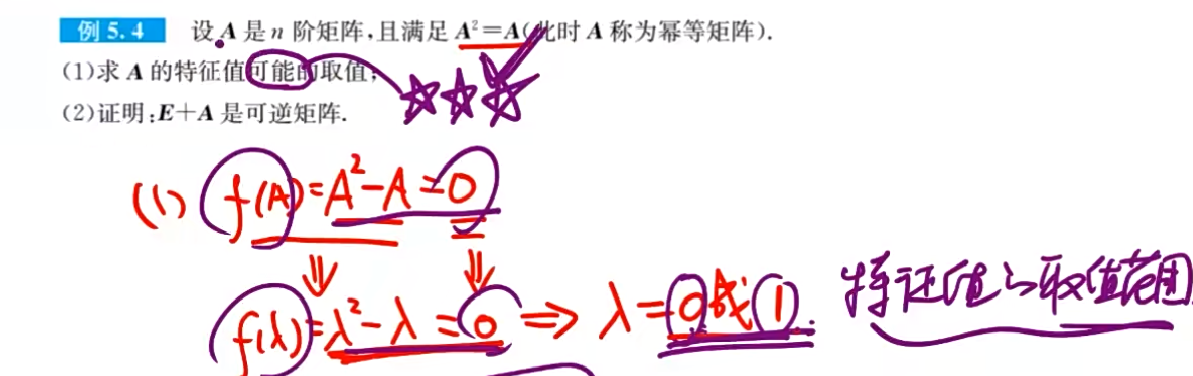 例 5.4 设 A 是 n 阶矩阵,且满足 A²=A(此时 A 称为幂等矩阵).
(1)求 A 的特征值可能的取值;
(2)证明:E+A 是可逆矩阵.
(1) f(A)=A²-A=0
⇓ ⇓
f(λ)=λ²-λ=0 ⇒ λ=0或1. 特征值的取值范围.